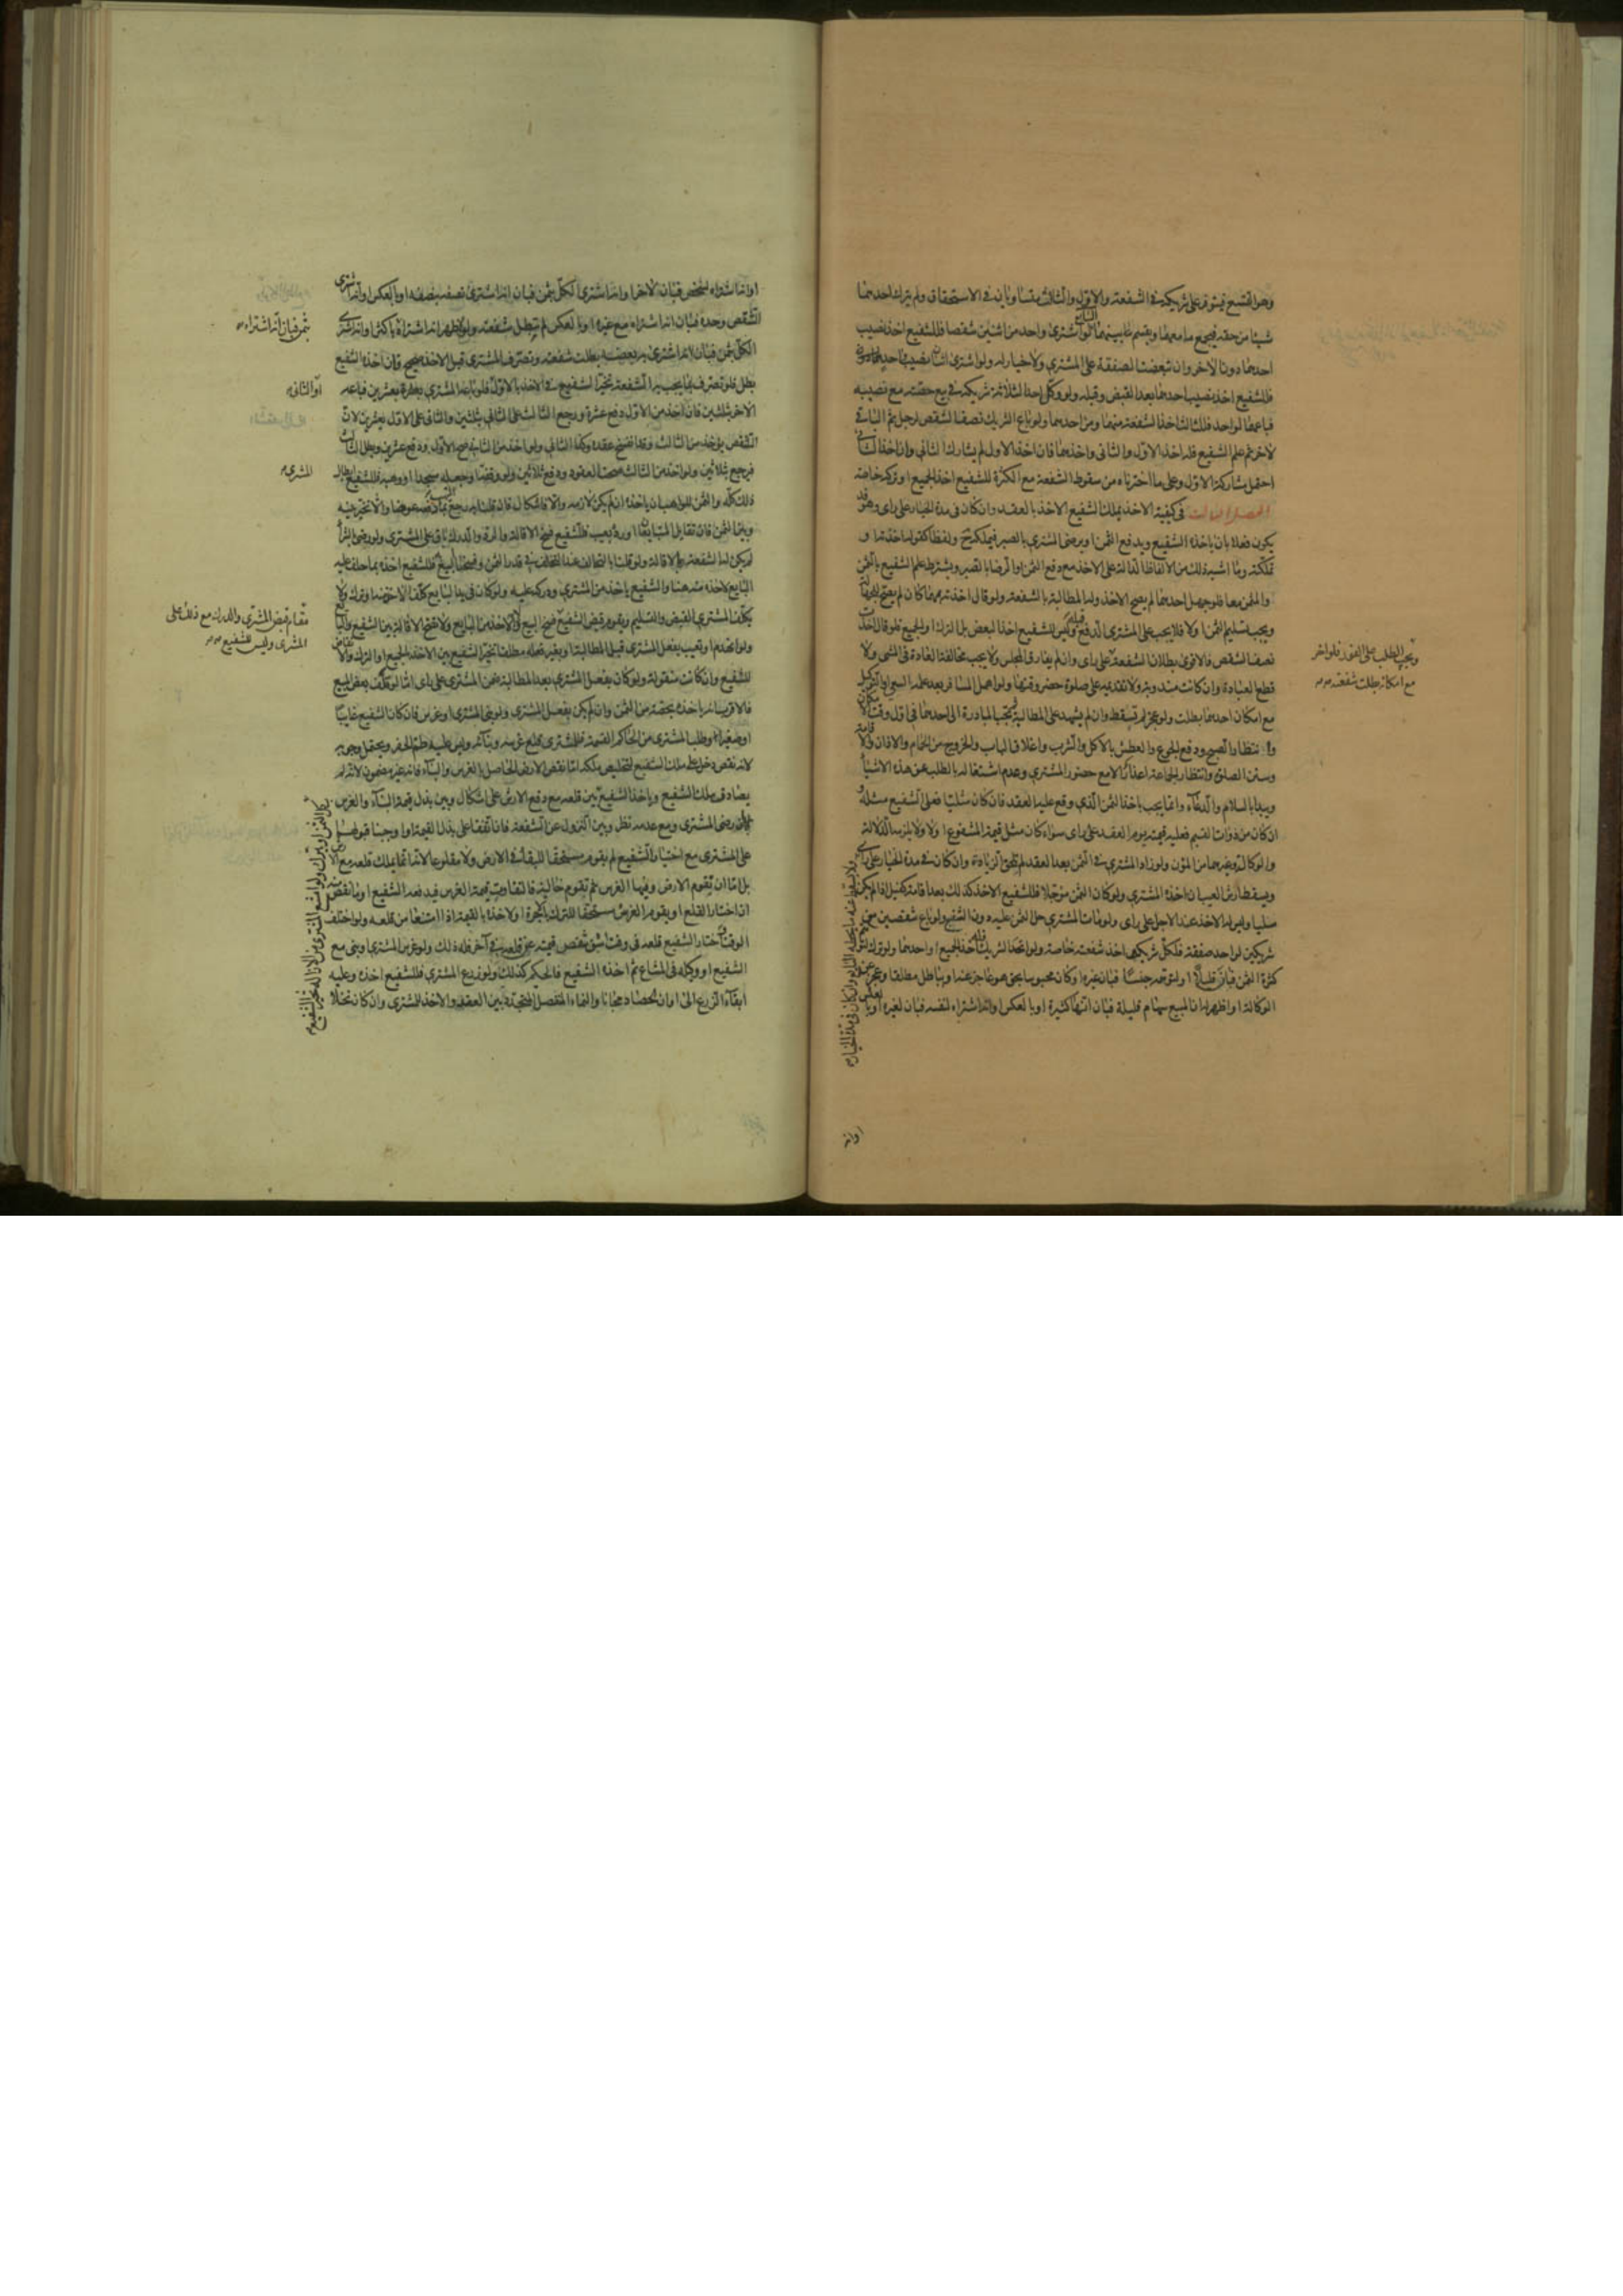 وهو التسع فيتوفر على شريكيه في الشفعة والاول والثالث متساويان في الاستحقاق ولم يترك احدهما
شيئا من حقه فيجمع ما معهما ويقسم بينهما ولو اشترى واحد من اثنين شقصا فللشفيع اخذ نصيب
احدهما دون الآخر وان تبعضت الصفقة على المشتري ولا خيار له ولو اشترى اثنان نصيب واحد
فللشفيع اخذ نصيب احدهما بعد القبض وقبله ولو وكل احد الثلاثة شريكه في بيع حصته مع نصيبه
فباعهما لواحد فللثالث اخذ الشفعة منهما ومن احدهما ولو باع الشريك نصف الشقص لرجل ثم الباقي
لآخر ثم علم الشفيع فله اخذ الاول والثاني واحدهما فان اخذ الاول لم يشاركه الثاني وان اخذ الثاني
احتمل مشاركة الاول وعلى ما اخترناه من سقوط الشفعة مع الكثرة للشفيع اخذ الجميع او تركه خاصة
الفصل الثالث في كيفية الاخذ يملك الشفيع الاخذ بالعقد وان كان في مدة الخيار على راى وهو قد
يكون فعلا بان ياخذه الشفيع ويدفع الثمن او يرضى المشتري بالصبر فيملكه ولفظا كقوله اخذته او
تملكته وما اشبه ذلك من الالفاظ الدالة على الاخذ مع دفع الثمن او الرضا بالصبر ويشترط علم الشفيع بالثمن
والمثمن معا فلو جهل احدهما لم يصح الاخذ وله المطالبة بالشفعة ولو قال اخذته مهما كان لم يصح للجهالة
ويجب تسليم الثمن اولا فلا يجب على المشتري الدفع قبله وليس للشفيع اخذ البعض بل الترك او الجميع فلو قال اخذت
نصف الشقص فالاقوى بطلان الشفعة على راى وان لم يفارق المجلس ولا يجب مخالفة العادة في المشي ولا
قطع العبادة وان كانت مندوبة ولا تقديمه على صلوة حضر وقتها ولو اهمل المسافر بعد علمه السعي او التوكيل
مع امكان احدهما بطلت ولو عجز لم تسقط وان لم يشهد على المطالبة وتجب المبادرة الى احدهما في اول وقت الامكان
وانتظار الصبح ودفع الجوع والعطش بالاكل والشرب واغلاق الباب والخروج من الحمام والاذان والاقامة
وسنن الصلوة وانتظار الجماعة اعذار الا مع حضور المشتري وعدم اشتغاله بالطلب عن هذه الاشياء
ويبدا بالسلام والدعاء وانما يجب ياخذ الثمن الذي وقع عليه العقد فان كان مثليا فعلى الشفيع مثله و
ان كان من ذوات القيم فعليه قيمته يوم العقد على راى سواء كان مثل قيمة المشفوع اولا ولا يلزمه الدلالة
والوكالة وغيرهما من المؤن ولو زاد المشتري في الثمن بعد العقد لم يلحق الزيادة وان كان في مدة الخيار على راى
ويسقط ارش العيب ان اخذه المشتري ولو كان الثمن مؤجلا فللشفيع الاخذ كذلك بعد اقامة كفيل اذا لم يكن
مليا وليس له الاخذ عند الاجل على راى ولو مات المشتري حل الثمن عليه دون الشفيع ولو باع شقصين مع
شريكين لواحد صفقة فلكل شريك اخذ شفعته خاصة ولو اتحد الشريك فله اخذ الجميع او احدهما ولو ترك لتوهم
كثرة الثمن فبان قليلا او لتوهمه جنسا فبان غيره او كان محبوسا بحق هو عاجز عنه او بباطل مطلقا وعجز عن
الوكالة او اظهر له ان المبيع سهام قليلة فبان انها كثيرة او بالعكس وانه اشتراه لنفسه فبان لغيره او بالعكس
ويجب الطلب على الفور فلو اخر
مع امكانه بطلت شفعته صح
ولا يسقط عنه ما يحطه البايع وان كان في مدة الخيار
او انه
او انه اشتراه لشخص فبان لآخر او انه اشترى الكل بثمن فبان انه اشترى نصفه بنصفه او بالعكس او انه اشترى
الشقص وحده فبان انه اشتراه مع غيره او بالعكس لم تبطل شفعته ولو اظهر انه اشتراه باكثر او انه اشترى
الكل بثمن فبان انه اشترى به بعضه بطلت شفعته وتصرف المشتري قبل الاخذ صحيح فان اخذه الشفيع
بطل فلو تصرف بما يجب به الشفعة تخير الشفيع في الاخذ بالاول فلو باعه المشتري بعشرة بعشرين فباعه
الآخر بثلثين فان اخذ من الاول دفع عشرة ورجع الثالث على الثاني بثلثين والثاني على الاول بعشرين لان
الشقص يؤخذ من الثالث وقد انفسخ عقده وكذا الثاني ولو اخذ من الثاني صح الاول ودفع عشرين وبطل الثالث
فيرجع بثلاثين ولو اخذ من الثالث صحت العقود ودفع ثلاثين ولو وقفه او جعله مسجدا او وهبه فللشفيع ابطال
ذلك كله والثمن للواهب ان ياخذه ان لم يكن لازمة والا فاشكال فان قلنا به رجع بما دفعه عوضا والا تخير بينه
وبين الثمن فان تقايل المتبايعان او رد بعيب فللشفيع فسخ الاقالة والرد والدرك باق على المشتري ولو رضي بالشراء
لم يكن له الشفعة بالاقالة ولو قلنا بالتحالف عند التخالف في قدر الثمن وفسخنا البيع به فللشفيع اخذه بما حلف عليه
البايع لاخذه منه هنا والشفيع ياخذ من المشتري ودركه عليه ولو كان في يد البايع كلف الاخذ منه او ترك ولا
يكلف المشتري القبض والتسليم ويقوم قبض الشفيع فسخ البيع والاخذ من البايع ولا تصح الاقالة بين الشفيع والبايع
ولو انهدم او تعيب بفعل المشتري قبل المطالبة او بغير فعله مطلقا تخير الشفيع بين الاخذ بالجميع او الترك والانقاض
للشفيع وان كانت منقولة ولو كان بفعل المشتري بعد المطالبة ضمن المشتري على راى اما لو تلف بعض المبيع
فالاقرب انه ياخذه بحصته من الثمن وان لم يكن بفعل المشتري ولو بنى المشتري او غرس فان كان الشفيع غايبا
او صغيرا وطلب المشتري من الحاكم القسمة فللمشتري قلع غرسه وبنائه وليس عليه طم الحفر ويحتمل وجوبه
لانه نقص دخل على ملك الشفيع لتخليص ملكه اما نقص الارض الحاصل بالغرس والبناء فانه غير مضمون لانه لم
يصادف ملك الشفيع وياخذ الشفيع بين قلعه مع دفع الارش على اشكال وبين بذل قيمة البناء والغرس
ان رضي المشتري ومع عدمه نظر وبين النزول عن الشفعة فان اتفقا على بذل القيمة او اوجبنا قبولها
على المشتري مع اختيار الشفيع لم يقوم مستحقا للبقاء في الارض ولا مقلوعا لانه انما يملك قلعه مع
بل اما ان تقوم الارض وفيها الغرس ثم تقوم خالية فالتفاوت قيمة الغرس فيدفعه الشفيع او ما نقص منه
ان اختار القلع او يقوم الغرس مستحقا للترك بالاجرة او لاخذه بالقيمة اذا امتنعا من قلعه ولو اختلف
الوقت واختار الشفيع قلعه في وقت سبق تقصر قيمته عن قلعه في آخر فله ذلك ولو غرس المشتري وبنى مع
الشفيع او وكيله في المشاع ثم اخذه الشفيع فالحكم كذلك ولو زرع المشتري فللشفيع اخذه وعليه
ابقاء الزرع الى اوان الحصاد مجانا والنماء المنفصل المتجدد بين العقد والاخذ للمشتري وان كان نخلا
بثمن فبان انه اشتراه صح
او الثاني
المشتري
مقام قبض المشتري والدرك مع ذلك على
المشتري وليس للشفيع صح